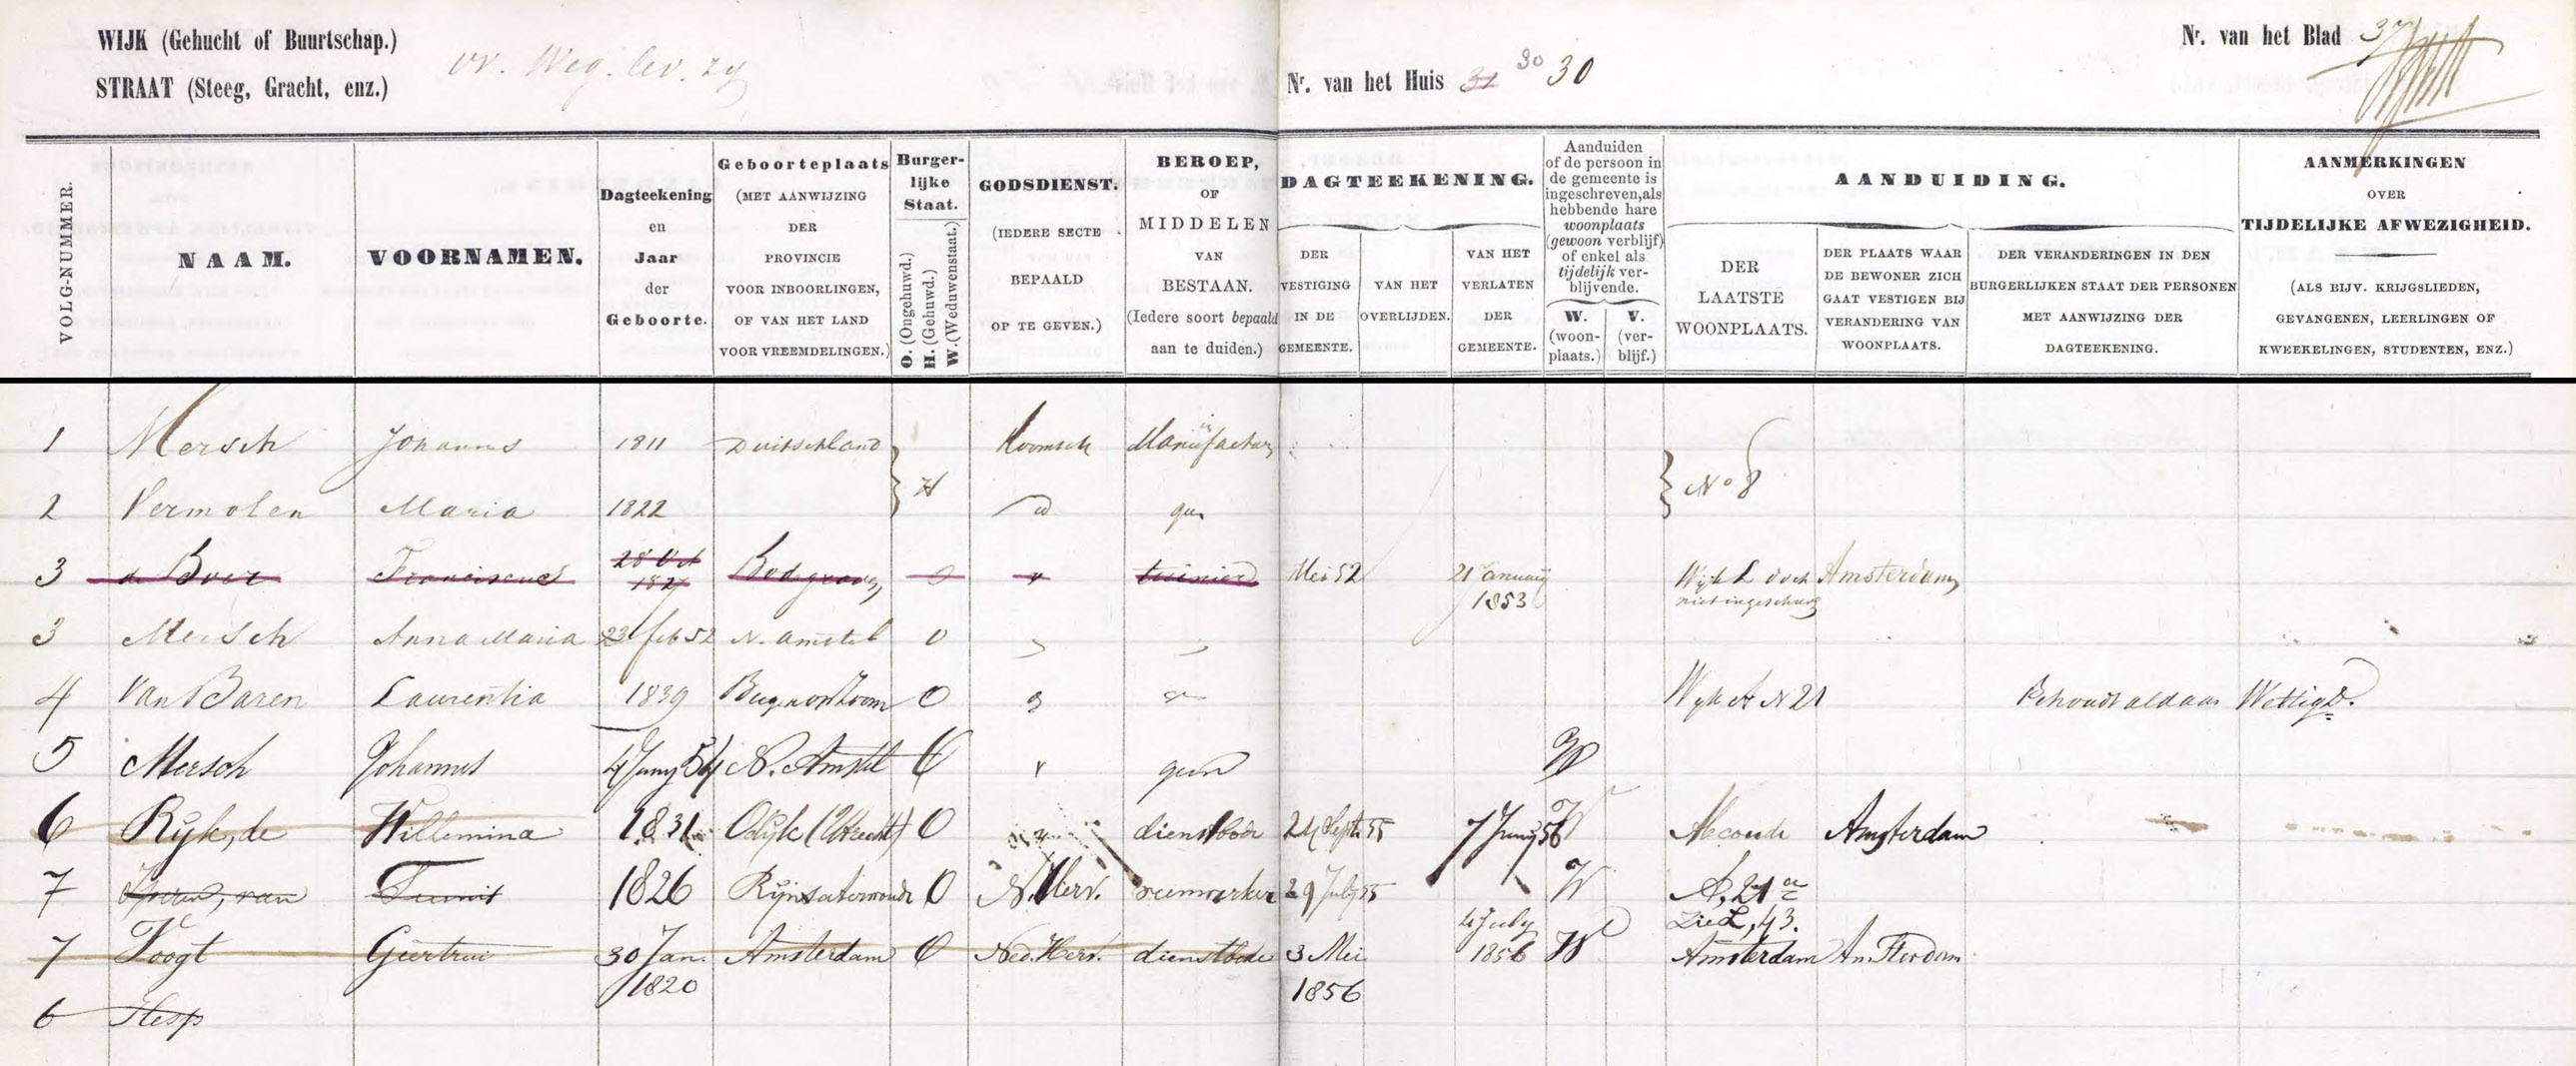 WIJK (Gehucht of Buurtschap.)
STRAAT (Steeg, Gracht, enz.)
Nr. van het Huis 31 30 30
Nr. van het Blad 37
VOLG-NUMMER.
NAAM.
VOORNAMEN.
Dagteekening en Jaar der Geboorte.
Geboorteplaats (MET AANWIJZING DER PROVINCIE VOOR INBOORLINGEN, OF VAN HET LAND VOOR VREEMDELINGEN.)
Burger-lijke Staat. O. (Ongehuwd.) H. (Gehuwd.) W. (Weduwenstaat.)
GODSDIENST. (IEDERE SECTE BEPAALD OP TE GEVEN.)
BEROEP, OF MIDDELEN VAN BESTAAN. (Iedere soort bepaald aan te duiden.)
DAGTEEKENING.
DER VESTIGING IN DE GEMEENTE.
VAN HET OVERLIJDEN.
VAN HET VERLATEN DER GEMEENTE.
Aanduiden of de persoon in de gemeente is ingeschreven, als hebbende hare woonplaats (gewoon verblijf) of enkel als tijdelijk ver-blijvende.
W. (woon-plaats.)
V. (ver-blijf.)
AANDUIDING.
DER LAATSTE WOONPLAATS.
DER PLAATS WAAR DE BEWONER ZICH GAAT VESTIGEN BIJ VERANDERING VAN WOONPLAATS.
DER VERANDERINGEN IN DEN BURGERLIJKEN STAAT DER PERSONEN MET AANWIJZING DER DAGTEEKENING.
AANMERKINGEN OVER TIJDELIJKE AFWEZIGHEID. (ALS BIJV. KRIJGSLIEDEN, GEVANGENEN, LEERLINGEN OF KWEEKELINGEN, STUDENTEN, ENZ.)
1 Mersch Johannes 1811 Duitschland H Roomsch No 8
2 Vermolen Maria 1822
3 de Boer Franciscus 28 Oct 1827 Bodegraven O tuinier Mei 52 21 January 1853 Wijk L doch niet ingeschreven Amsterdam
3 Mersch Anna Maria 23 feb 52 N. Amstel O
4 Van Baren Laurentia 1839 O Wyk A N 21 Behoudt aldaar Wettig D.
5 Mersch Johannes 4 Juny 54 N. Amstel O geen W
6 Ryk, de Willemina 1831 Odijk (Utrecht) O dienstbode 24 Sept 55 7 Juny 56 W Abcoude Amsterdam
7 van Teunis 1826 Rijnsaterwoude O N. Herv. veenwerker 29 July 55 W A, 21 a zie L, 43.
7 Voogt Geertrui 30 Jan. 1820 Amsterdam O Ned. Herv. dienstbode 3 Mei 1856 4 July 1856 W Amsterdam Amsterdam
6 Hesp